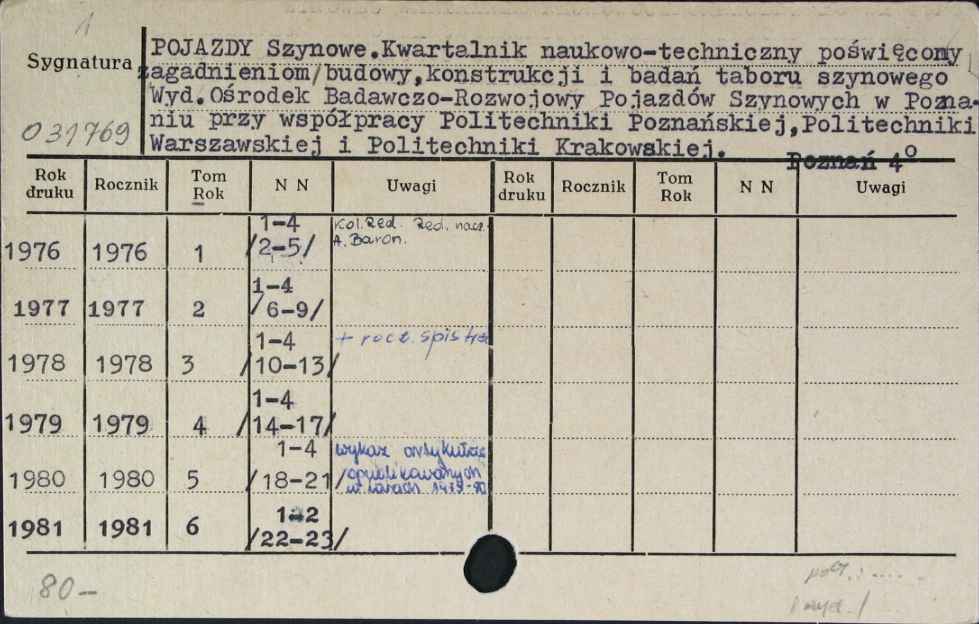 1
Sygnatura
031769
POJAZDY Szynowe.Kwartalnik naukowo-techniczny poświęcony
zagadnieniom/budowy,konstrukcji i badań taboru szynowego
Wyd.Ośrodek Badawczo-Rozwojowy Pojazdów Szynowych w Pozna-
niu przy współpracy Politechniki Poznańskiej,Politechniki
Warszawskiej i Politechniki Krakowskiej.
Poznań 4°
Rok druku Rocznik Tom Rok N N Uwagi Rok druku Rocznik Tom Rok N N Uwagi
1976 1976 1 1-4 /2-5/ Kol.Red. Red. nacz. A. Baron.
1977 1977 2 1-4 /6-9/
1978 1978 3 1-4 /10-13/ + rocz. spis
1979 1979 4 1-4 /14-17/
1980 1980 5 1-4 /18-21/ wykaz artykułów opublikowanych w latach
1981 1981 6 1-2 /22-23/
80-